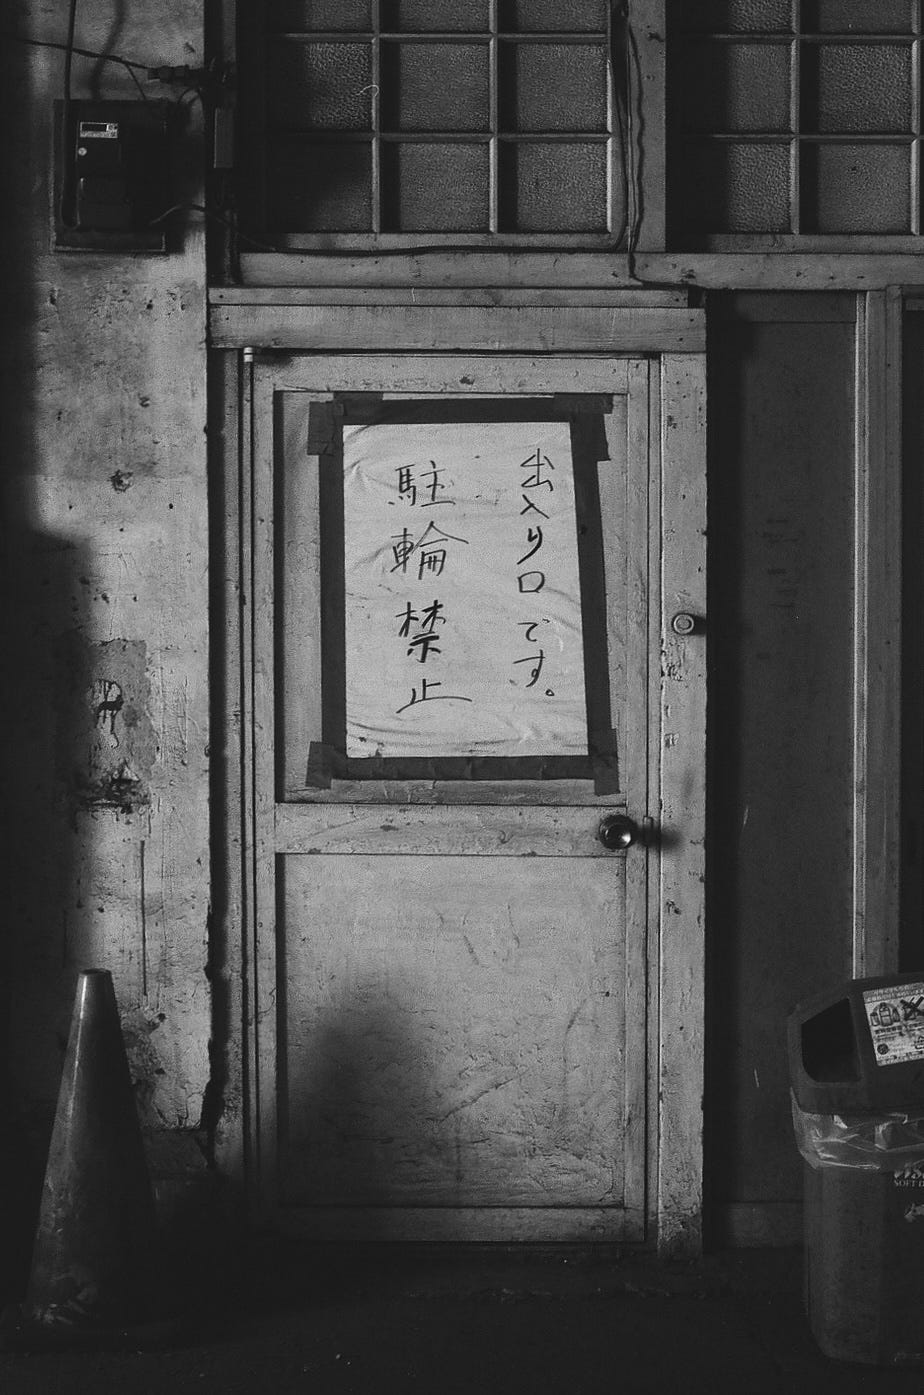 出入り口です。
駐輪禁止
SOFT D